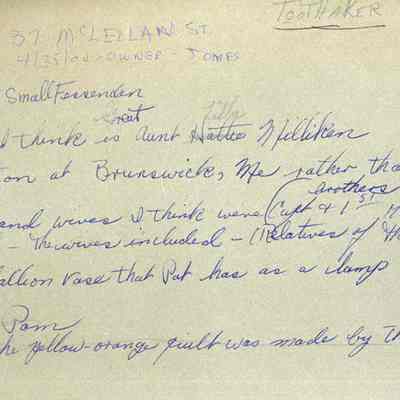 TOOTHAKER
37 McLELLAN ST.
4/25/00 - OWNER - JONES
Small Fessenden
Great Tilly
I think is Aunt Hattie Milliken
ton at Brunswick, Me rather tha
brothers
and wives I think were (Capt & 1st M
- The wives included - (Relatives of
allion vase that Pat has as a lamp
Pam
he yellow-orange quilt was made by Th